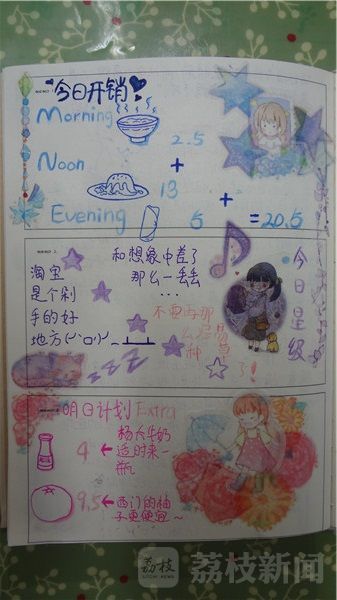 MEMO 1
今日开销
Morning
2.5
Noon
+
13
+
Evening
5
=20.5
MEMO 2
和想象中差了
那么一丢丢
...
淘宝
是个剁
手的好
地方
今日星级
不要再那
么容易
种草
了!
zzz
明日计划 Extra
杨大牛奶
适时来一
瓶
4
9.5
西门的柚
子更便宜~
荔枝
LITCHI NEWS
荔枝新闻